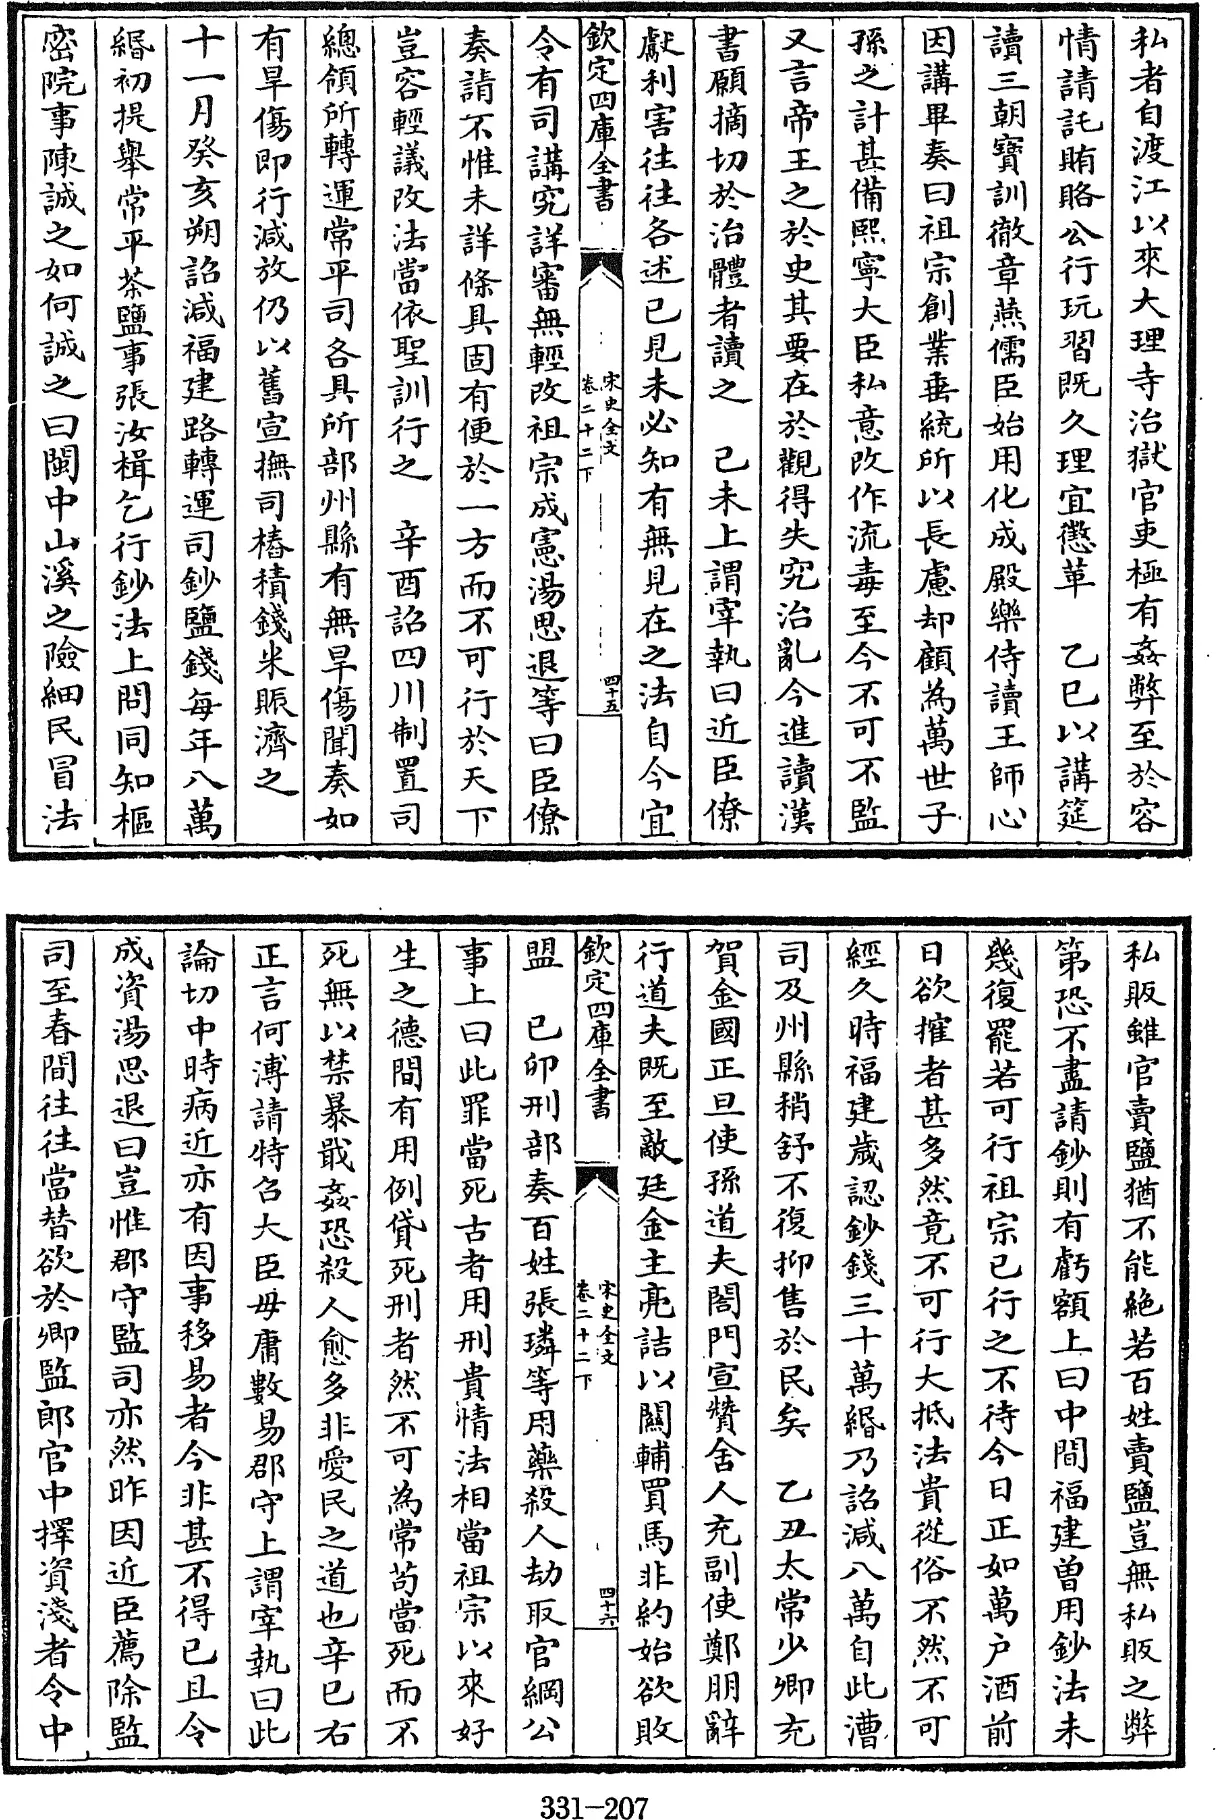 私者自渡江以來大理寺治獄官吏極有姦弊至於容
情請託賄賂公行玩習既久理宜懲革　乙巳以講筵
讀三朝寶訓徹章燕儒臣始用化成殿樂侍讀王師心
因講畢奏曰祖宗創業垂統所以長慮却顧為萬世子
孫之計甚備熙寧大臣私意改作流毒至今不可不監
又言帝王之於史其要在於觀得失究治亂今進讀漢
書願摘切於治體者讀之　己未上謂宰執曰近臣僚
獻利害往往各述已見未必知有無見在之法自今宜
欽定四庫全書
宋史全文
卷二十二下
四十五
令有司講究詳審無輕改祖宗成憲湯思退等曰臣僚
奏請不惟未詳條具固有便於一方而不可行於天下
豈容輕議改法當依聖訓行之　辛酉詔四川制置司
總領所轉運常平司各具所部州縣有無旱傷聞奏如
有旱傷即行減放仍以舊宣撫司樁積錢米賑濟之
十一月癸亥朔詔減福建路轉運司鈔鹽錢每年八萬
緡初提舉常平茶鹽事張汝楫乞行鈔法上問同知樞
密院事陳誠之如何誠之曰閩中山溪之險細民冒法
私販雖官賣鹽猶不能絶若百姓賣鹽豈無私販之弊
第恐不盡請鈔則有虧額上曰中間福建曽用鈔法未
幾復罷若可行祖宗已行之不待今日正如萬户酒前
日欲搉者甚多然竟不可行大抵法貴從俗不然不可
經久時福建歲認鈔錢三十萬緡乃詔減八萬自此漕
司及州縣稍舒不復抑售於民矣　乙丑太常少卿充
賀金國正旦使孫道夫閤門宣贊舍人充副使鄭朋辭
行道夫既至敵廷金主亮詰以關輔買馬非約始欲敗
欽定四庫全書
宋史全文
卷二十二下
四十六
盟　已卯刑部奏百姓張璘等用藥殺人劫取官綱公
事上曰此罪當死古者用刑貴情法相當祖宗以來好
生之德間有用例貸死刑者然不可為常茍當死而不
死無以禁暴戢姦恐殺人愈多非愛民之道也辛巳右
正言何溥請特召大臣毋庸數易郡守上謂宰執曰此
論切中時病近亦有因事移易者今非甚不得已且令
成資湯思退曰豈惟郡守監司亦然昨因近臣薦除監
司至春間往往當替欲於卿監郎官中擇資淺者令中
331-207